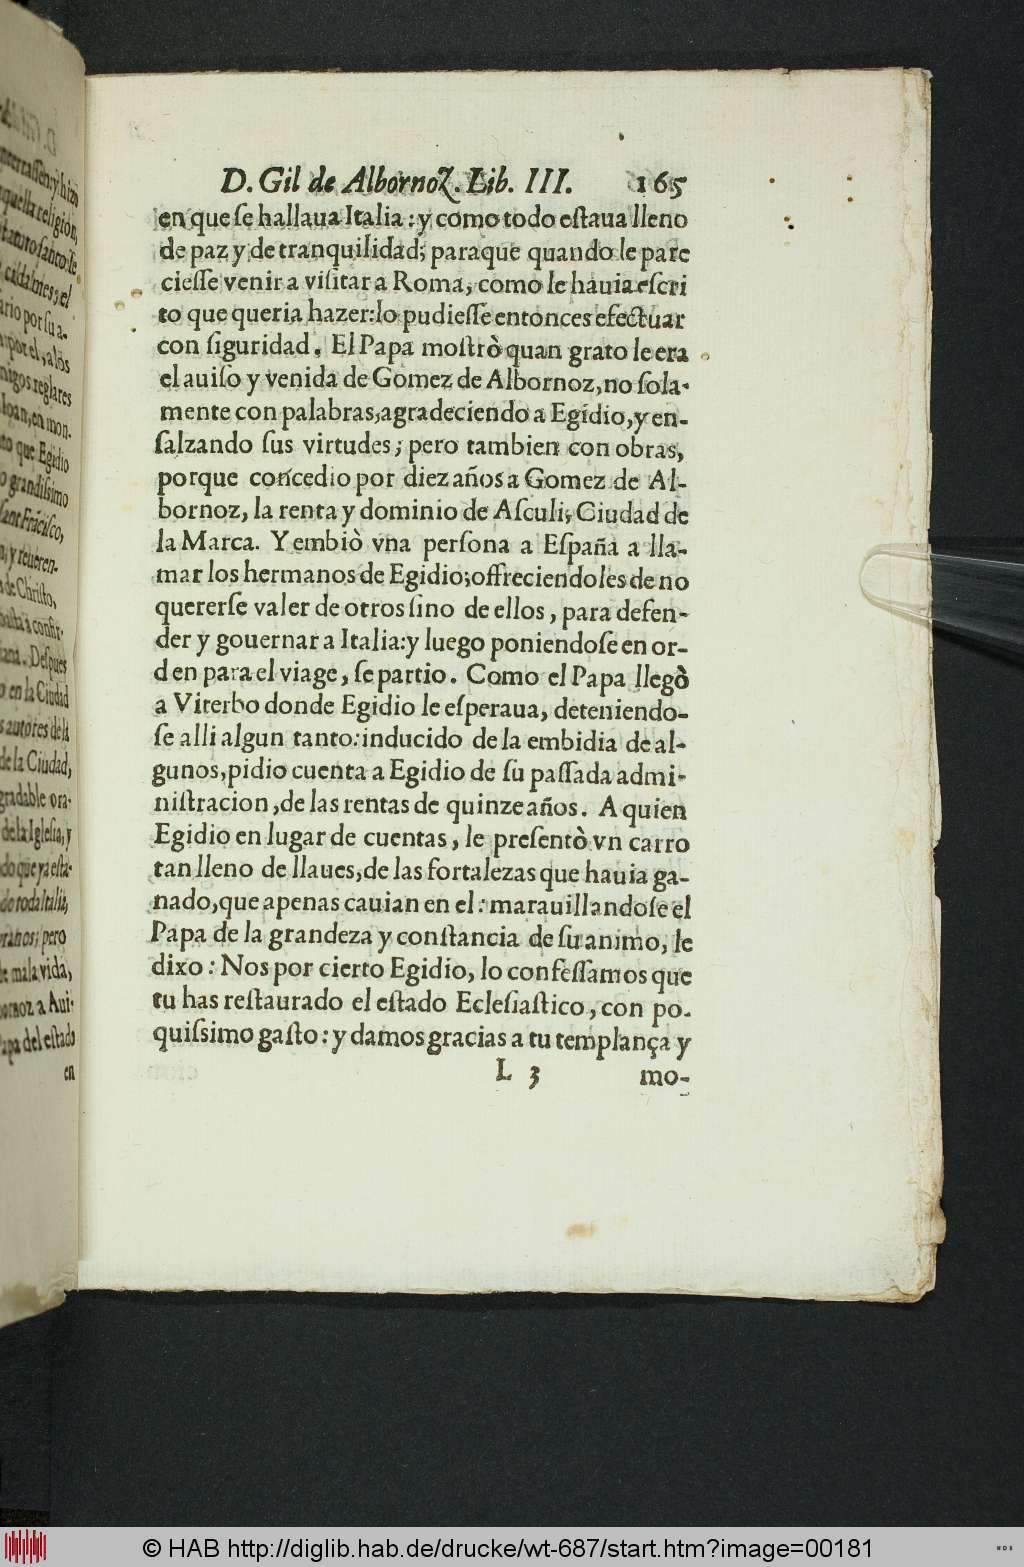 D. Gil de Albornoz. Lib. III. 165
en que ſe hallaua Italia : y como todo eſtaua lleno
de paz y de tranquilidad; paraque quando le pare
cieſſe venir a viſitar a Roma, como le hauia eſcri
to que queria hazer: lo pudieſſe entonces efectuar
con ſiguridad. El Papa moſtrò quan grato le era
el auiſo y venida de Gomez de Albornoz, no ſola-
mente con palabras, agradeciendo a Egidio, y en-
ſalzando ſus virtudes; pero tambien con obras,
porque concedio por diez años a Gomez de Al-
bornoz, la renta y dominio de Aſculi, Ciudad de
la Marca. Y embiò vna perſona a Eſpaña a lla-
mar los hermanos de Egidio; offreciendoles de no
quererſe valer de otros ſino de ellos, para defen-
der y gouernar a Italia: y luego poniendoſe en or-
den para el viage, ſe partio. Como el Papa llegò
a Viterbo donde Egidio le eſperaua, deteniendo-
ſe alli algun tanto: inducido de la embidia de al-
gunos, pidio cuenta a Egidio de ſu paſſada admi-
niſtracion, de las rentas de quinze años. A quien
Egidio en lugar de cuentas, le preſentò vn carro
tan lleno de llaues, de las fortalezas que hauia ga-
nado, que apenas cauian en el: marauillandoſe el
Papa de la grandeza y conſtancia de ſu animo, le
dixo: Nos por cierto Egidio, lo confeſſamos que
tu has reſtaurado el eſtado Ecleſiaſtico, con po-
quiſsimo gaſto: y damos gracias a tu templança y
L 3 mo-
quella religion,
que Egidio
grandiſsimo
ſant Frāciſco,
de Chriſto,
Deſpues
en la Ciudad
autores de la
de la Ciudad,
gradable ora-
de la Igleſia, y
do que ya eſta-
de toda Italia,
pero
mala vida,
a Aui-
Papa del eſtado
en
© HAB http://diglib.hab.de/drucke/wt-687/start.htm?image=00181